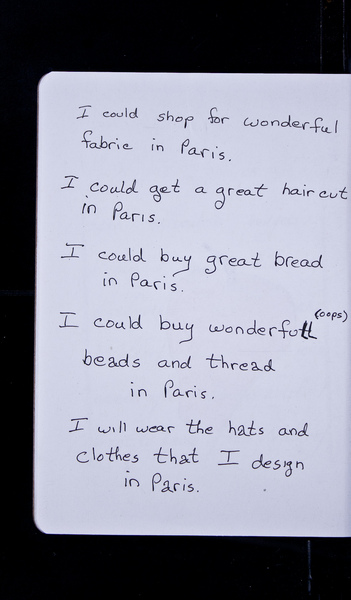 I could shop for wonderful
fabric in Paris.
I could get a great haircut
in Paris.
I could buy great bread
in Paris.
(oops)
I could buy wonderfull
beads and thread
in Paris.
I will wear the hats and
clothes that I design
in Paris.